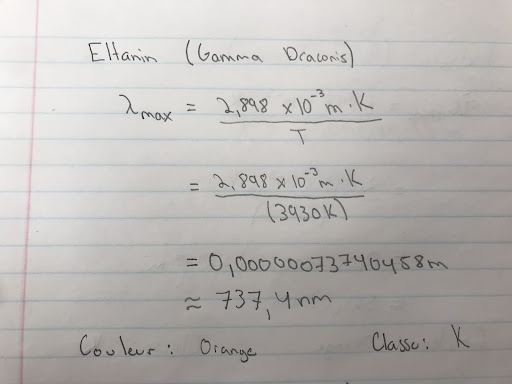 Eltanin (Gamma Draconis)
λmax = 2,898 x 10⁻³ m · K
T
= 2,898 x 10⁻³ m · K
(3930K)
= 0,00000073740458m
≈ 737,4nm
Couleur : Orange Classe: K